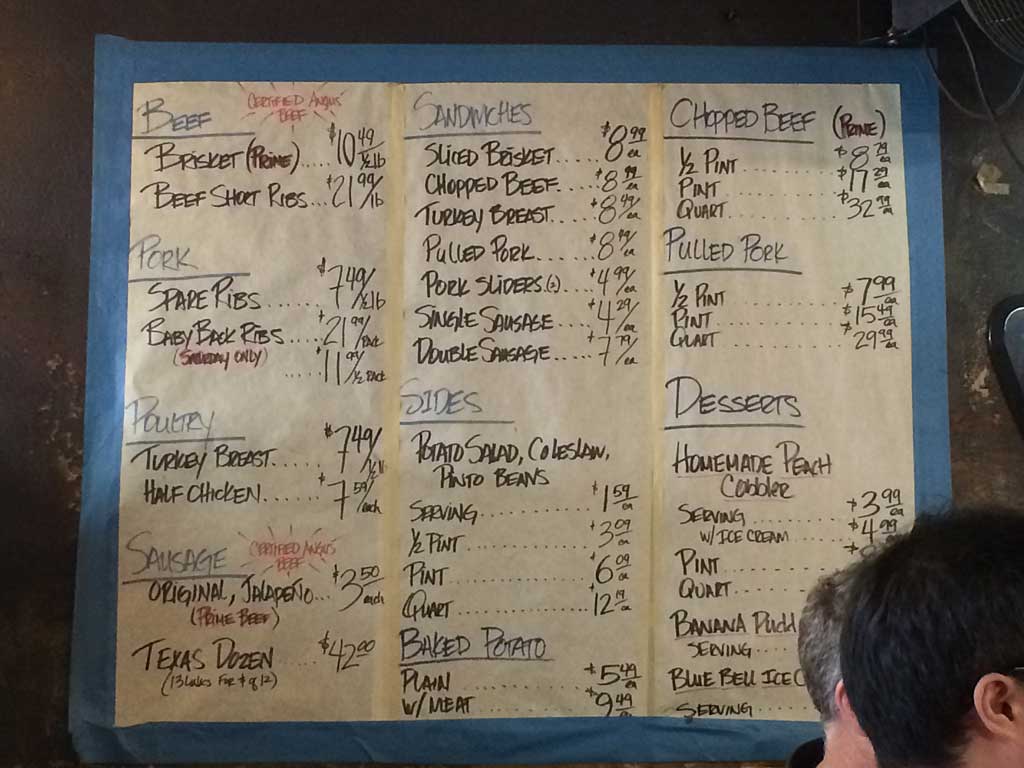 BEEF
CERTIFIED ANGUS BEEF
BRISKET (PRIME).... $10.49/½lb
BEEF SHORT RIBS... $21.99/lb
PORK
SPARE RIBS ...... $7.49/½lb
BABY BACK RIBS ..... $21.99/RACK
(SATURDAY ONLY)
..... $11.99/½ RACK
POULTRY
TURKEY BREAST..... $7.49/½lb
HALF CHICKEN...... $7.59/each
SAUSAGE
CERTIFIED ANGUS BEEF
ORIGINAL, JALAPEÑO... $3.50 each
(PRIME BEEF)
TEXAS DOZEN .... $42.00
(13 Links FOR $ of 12)
SANDWICHES
SLICED BRISKET..... $8.99 ea
CHOPPED BEEF... $8.79 ea
TURKEY BREAST.... $8.49/ea
PULLED PORK.... $8.79/ea
PORK SLIDERS (2)... $4.99/ea
SINGLE SAUSAGE .... $4.29/ea
DOUBLE SAUSAGE .... $7.79/ea
SIDES
POTATO SALAD, COLESLAW,
PINTO BEANS
SERVING ............ $1.59 ea
½ PINT ............ $3.09 ea
PINT ............ $6.09 ea
QUART ............ $12.19 ea
BAKED POTATO
PLAIN ............ $5.49 ea
W/ MEAT ........ $9.49
CHOPPED BEEF (PRIME)
½ PINT ........ $8.79 ea
PINT ........ $17.29 ea
QUART ........ $32.99 ea
PULLED PORK
½ PINT ........ $7.99 ea
PINT ........ $15.49 ea
QUART ........ $29.99 ea
DESSERTS
HOMEMADE PEACH
COBBLER
SERVING ........ $3.99 ea
W/ ICE CREAM ..... $4.99
PINT ........
QUART ........
BANANA PUDD
SERVING .....
BLUE BELL ICE C
SERVING .....